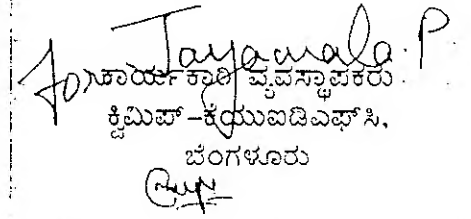 Jayamala. P
For ಕಾರ್ಯಕಾರಿ ವ್ಯವಸ್ಥಾಪಕರು
ಕ್ವಿಮಿಪ್-ಕೆಯುಐಡಿಎಫ್‌ಸಿ,
ಬೆಂಗಳೂರು